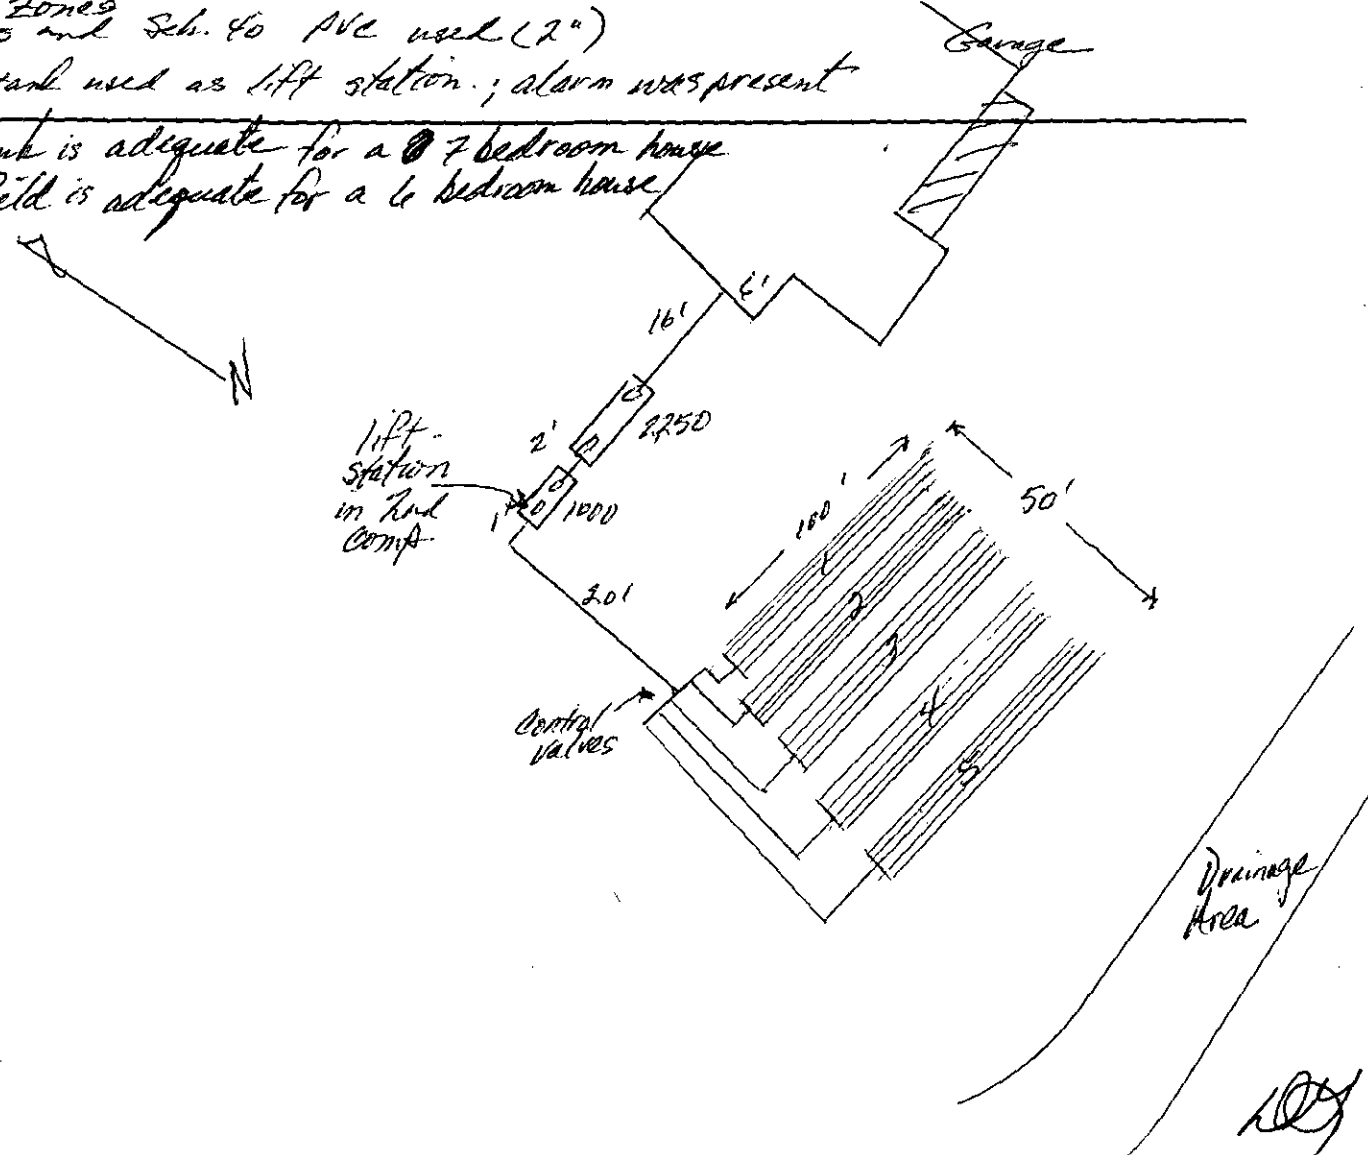 Zones
and Sch. 40 PVC used (2")
tank used as lift station.; alarm was present
is adequate for a 7 bedroom house
is adequate for a 6 bedroom house
Garage
N
16'
6'
2'
2250
lift
station
in 2nd
comp.
1'
1000
20'
Control
Valves
100'
50'
1
2
3
4
5
Drainage
Area